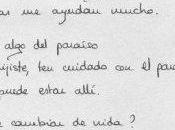 me ayudan mucho.
algo del paraíso
dijiste, ten cuidado con el par
puede estar allí.
e cambian de vida?